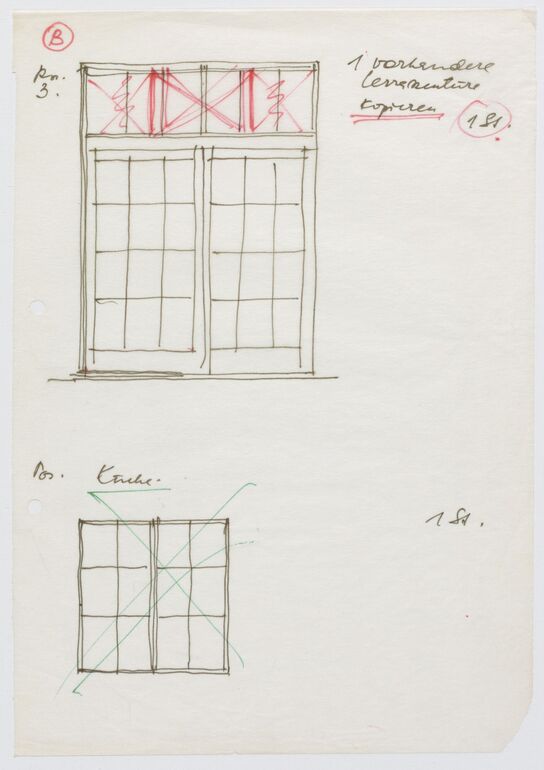 B
Pos.
3.
1 vorhandere
terrassentüre
kopieren
1 St.
Pos. Küche.
1 St.